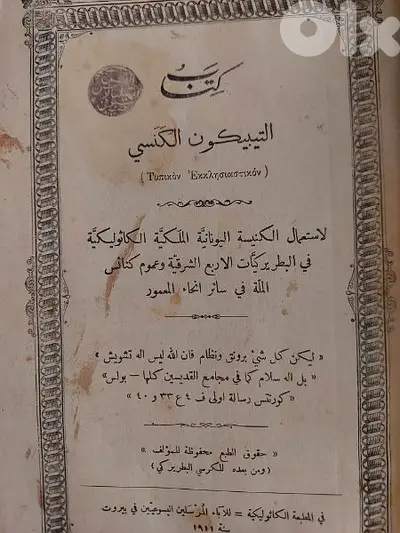 olx
كتاب
التيبيكون الكَنَسي
( Τυπικὸν Ἐκκλησιαστικόν )
لاستعمال الكنيسة اليونانيَّة الملكيَّة الكاثوليكيَّة
في البطريركيَّات الاربع الشرقيَّة وعموم كنائس
الملَّة في سائر انحاء المعمور
« ليكن كل شيْ برونق ونظام فان الله ليس اله تشويش »
« بل اله سلام كما في مجامع القديسين كلها – بولس »
« كورنتس رسالة اولى ف ٤ ع ٣٣ و ٤٠ »
« حقوق الطبع محفوظة للمؤلف »
( ومن بعده للكرسي البطريركي )
في المطبعة الكاثوليكية = للآباء المرسلين اليسوعيّين في بيروت
سنة ١٩١١